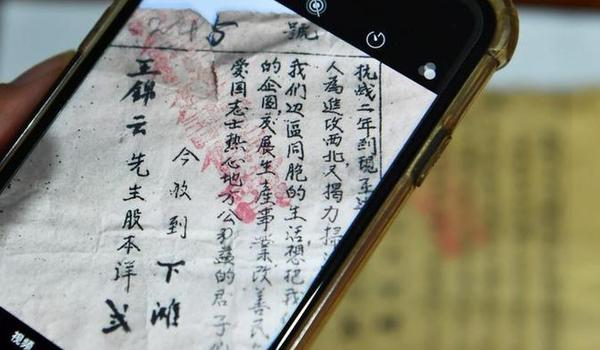 245 號
抗战二年到現
人為進攻西北又揭力
我们边區同胞的生活想把我
的企圖发展生產事業改善民
爱国志士热心地方公益的君子
今收到下灘
王錦云先生股本洋弍
视频